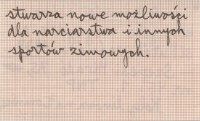 stwarza nowe możliwości
dla narciarstwa i innych
sportów zimowych.